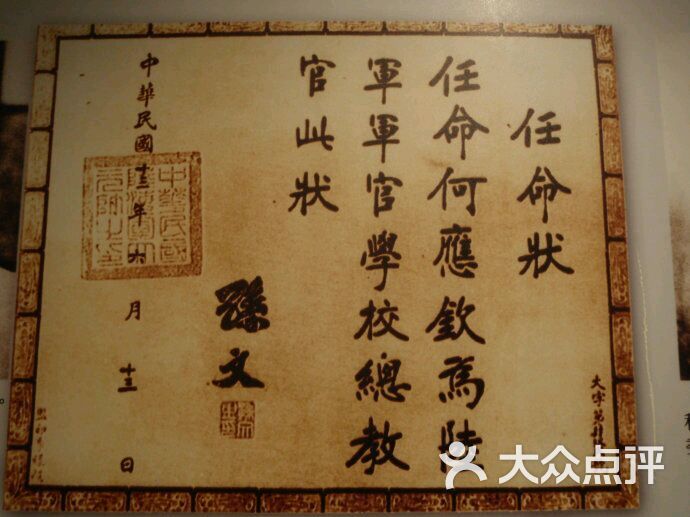 任命狀
任命何應欽為陸
軍軍官學校總教
官此狀
孫文
中華民國十三年六月十三日
大字第
大众点评